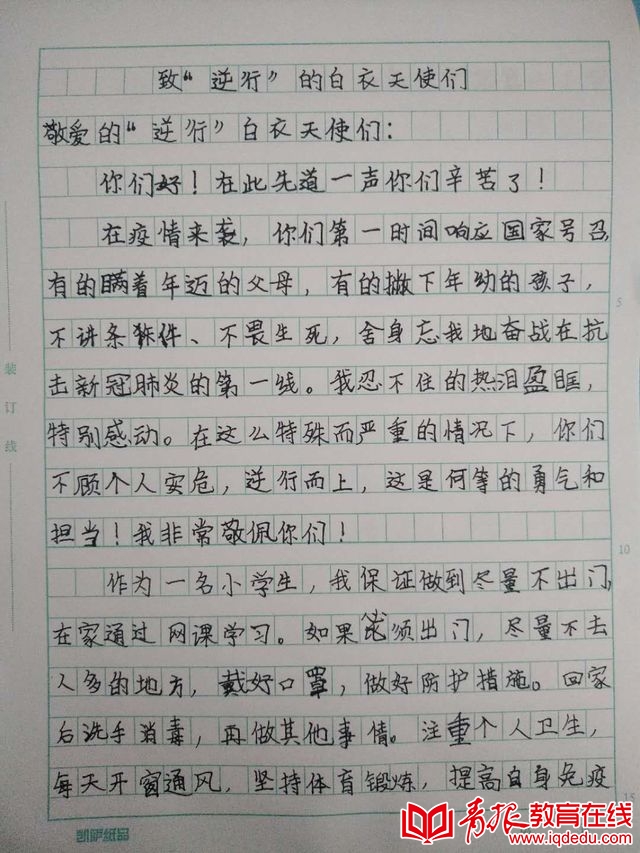 致“逆行”的白衣天使们
敬爱的“逆行”白衣天使们：
你们好！在此先道一声你们辛苦了！
在疫情来袭，你们第一时间响应国家号召，
有的瞒着年迈的父母，有的撇下年幼的孩子，
不讲条件、不畏生死，舍身忘我地奋战在抗
击新冠肺炎的第一线。我忍不住的热泪盈眶，
特别感动。在这么特殊而严重的情况下，你们
不顾个人安危，逆行而上，这是何等的勇气和
担当！我非常敬佩你们！
作为一名小学生，我保证做到尽量不出门，
在家通过网课学习。如果必须出门，尽量不去
人多的地方，戴好口罩，做好防护措施。回家
后洗手消毒，再做其他事情。注重个人卫生，
每天开窗通风，坚持体育锻炼，提高自身免疫
装订线
5
10
15
凯萨纸品
青报教育在线
www.iqdedu.com